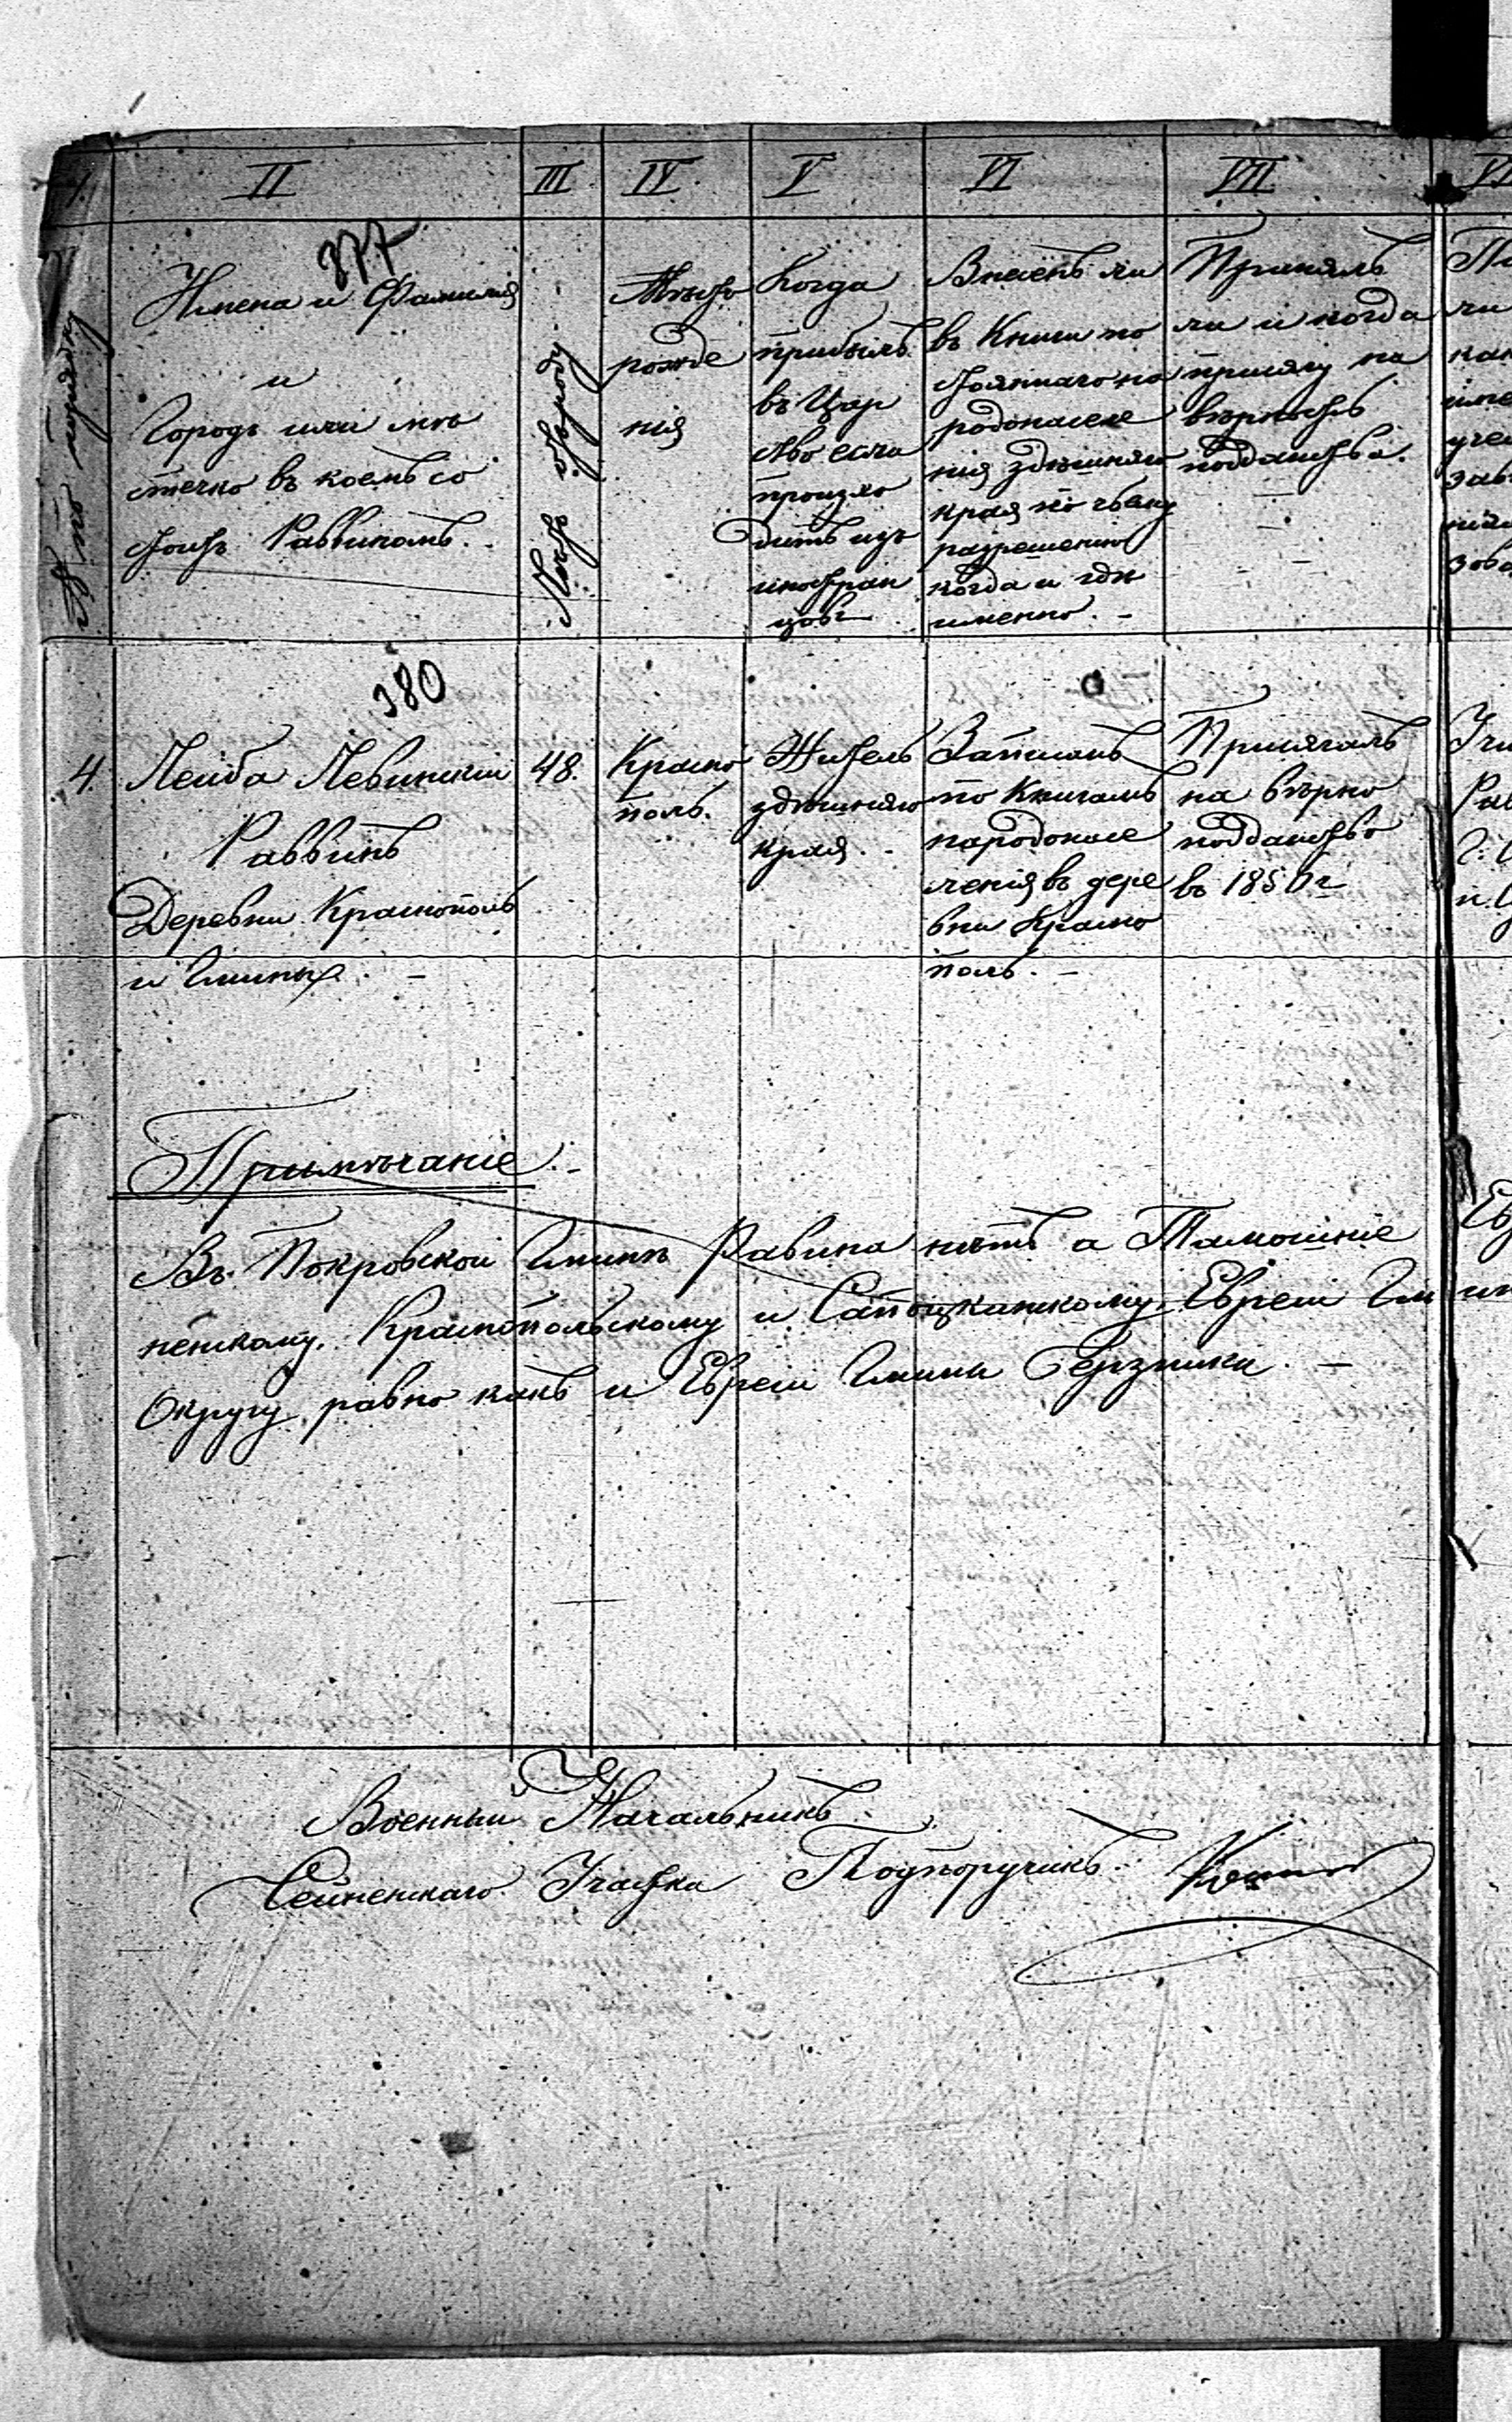 I. II III IV V VI VII VI
№ по порядку
377
Имена и Фамилия
и
Городъ или мѣ
стечко въ коемъ со
стоитъ Раввиномъ.
Лѣтъ отъ роду
Мѣсто
рожде
нія
Когда
прибылъ
въ Цар
ство если
происхо
дитъ изъ
иностран
цовъ
Внесенъ ли
въ Книги по
стояннаго на
родонаселе
нія здѣшняго
края по чьему
разрешенію
когда и гдѣ
именно. –
Принялъ
ли и когда
присягу на
вѣрность
подданства.
380
4.
Лейба Левинскій
Раввинъ
Деревни Краснополь
и Гмины. –
48.
Красно
поль.
Житель
здѣшняго
края. –
Записанъ
по Книгамъ
народонасе
ленія въ дере
вни Красно
поль. –
Присягалъ
на вѣрно
подданство
въ 1850 г
Примѣчаніе. –
Въ Покровской Гминѣ Равина нѣтъ а Тамошніе
нѣнскому, Краснопольскому и Сапоцканскому Евреи Гм
Округу, равно какъ и Евреи Гмины Бержники. –
Военный Начальникъ
Сейненскаго Участка Подпоручикъ